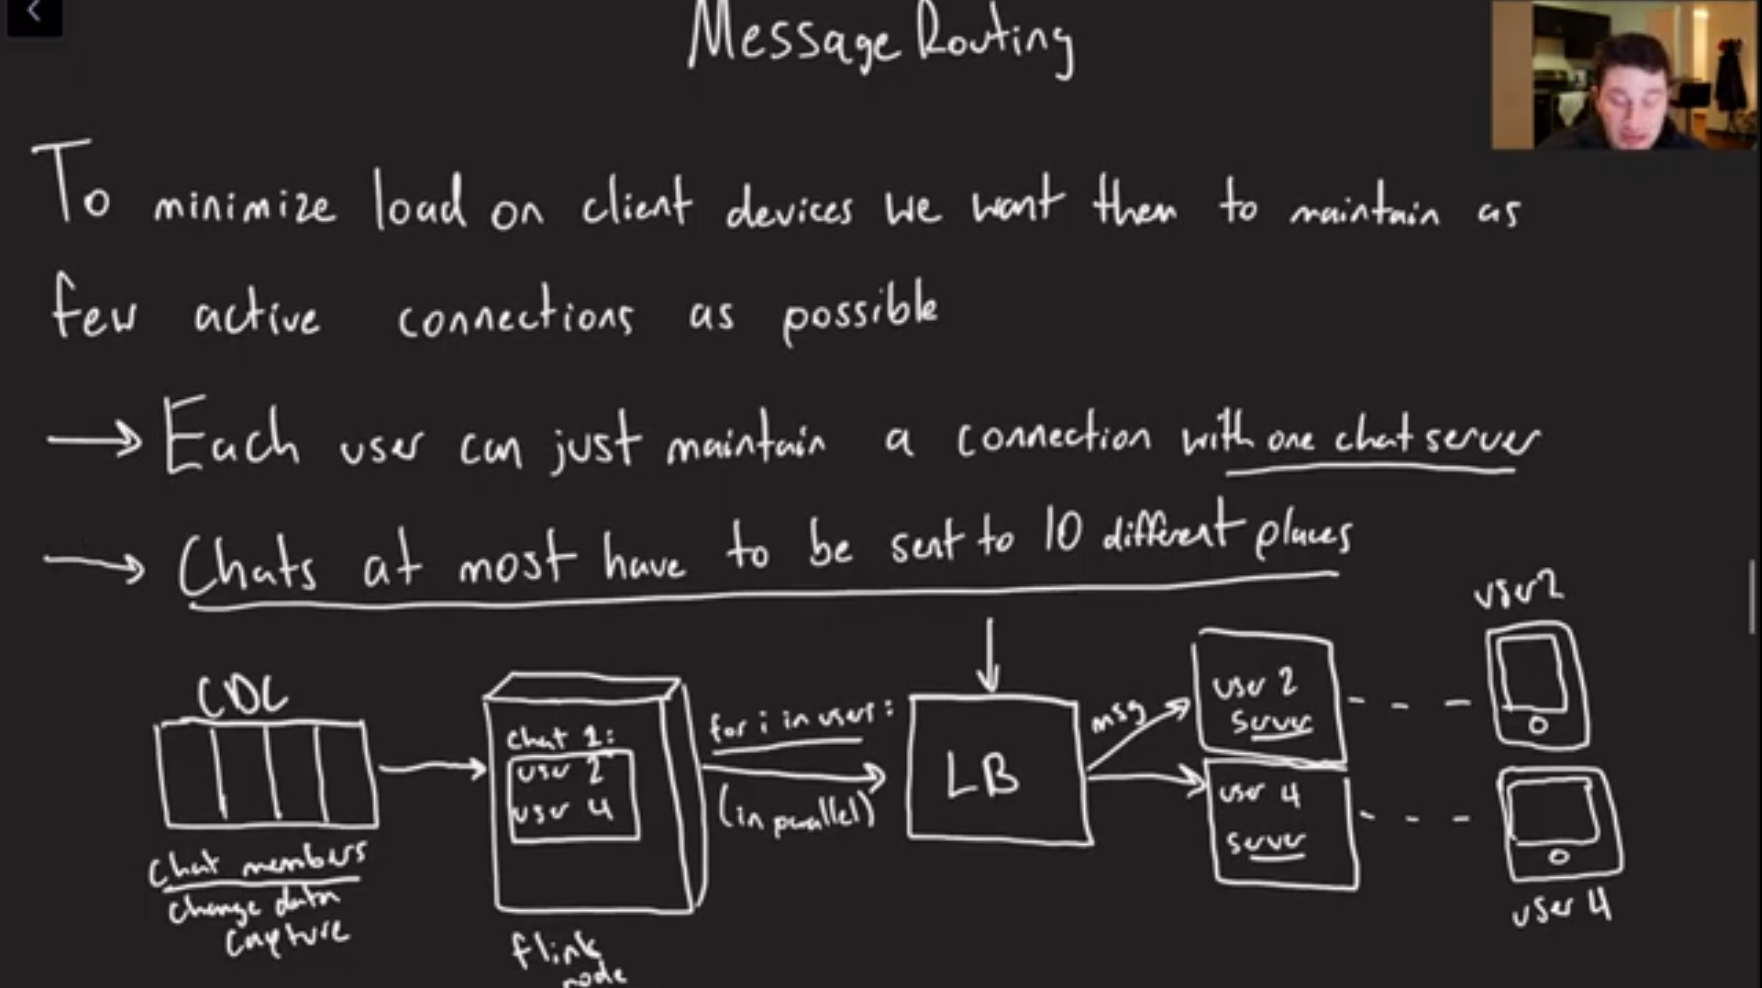 Message Routing
To minimize load on client devices we want them to maintain as
few active connections as possible
→ Each user can just maintain a connection with one chat server
→ Chats at most have to be sent to 10 different places
CDC
chat members
change data
capture
chat 1:
user 2
user 4
flink
node
for i in user:
(in parallel)
LB
msg
user 2
server
user 4
server
user 2
user 4